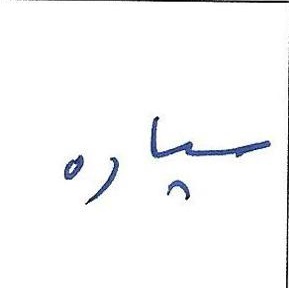 سياره